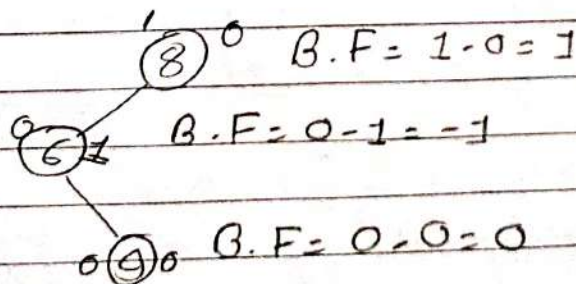 1 8 0 B.F = 1 - 0 = 1
0 6 1 B.F = 0 - 1 = -1
0 9 0 B.F = 0 - 0 = 0